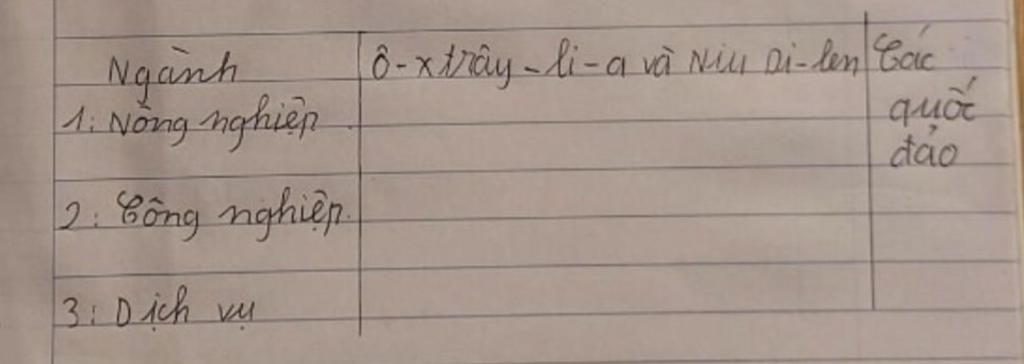 Ngành Ô-xtrây-li-a và Niu Di-len Các quốc đảo
1: Nông nghiệp
2: Công nghiệp.
3: Dịch vụ